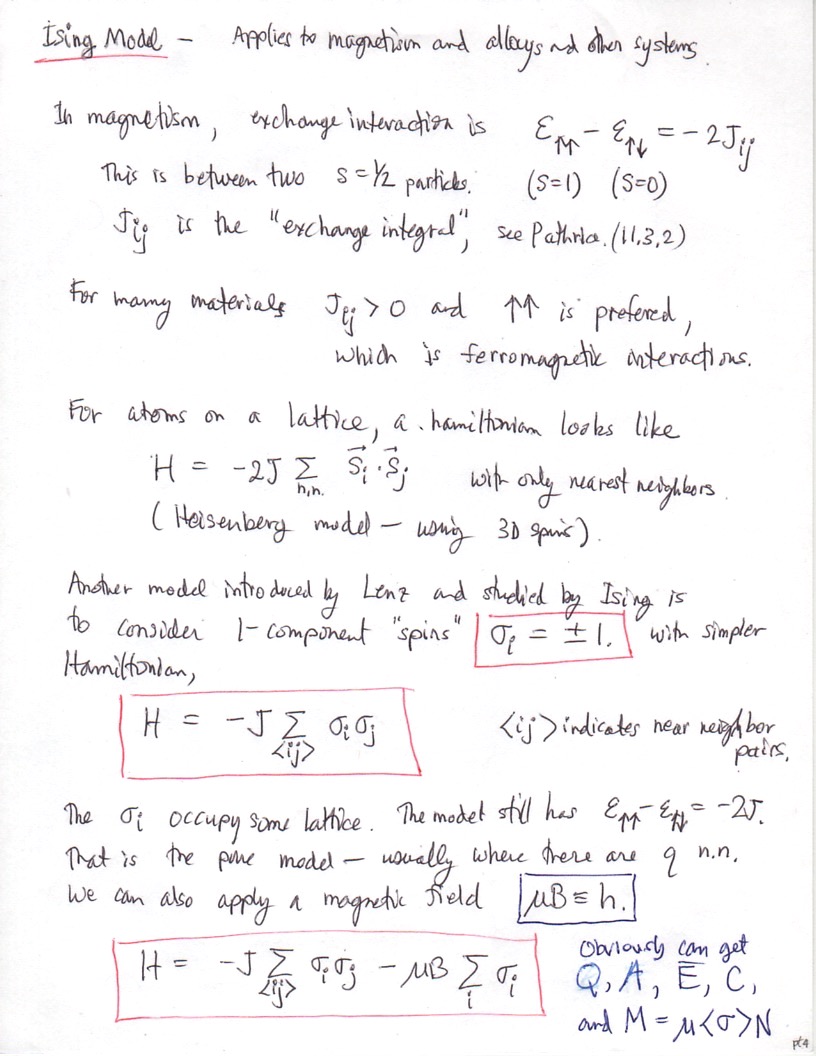 Ising Model – Applies to magnetism and alloys and other systems.
In magnetism, exchange interaction is ε↑↑ − ε↑↓ = −2Jij
This is between two s=½ particles. (S=1) (S=0)
Jij is the "exchange integral", see Pathria. (11,3,2)
For many materials Jij > 0 and ↑↑ is prefered,
which is ferromagnetic interactions.
For atoms on a lattice, a hamiltonian looks like
H = −2J Σ n,n. S⃗i · S⃗j with only nearest neighbors.
(Heisenberg model – using 3D spins).
Another model introduced by Lenz and studied by Ising is
to consider 1-component "spins" σi = ±1. with simpler
Hamiltonian,
H = −J Σ<ij> σiσj <ij> indicates near neighbor
pairs.
The σi occupy some lattice. The model still has ε↑↑ − ε↑↓ = −2J.
That is the pure model – usually where there are q n.n.
We can also apply a magnetic field μB ≡ h.
H = −J Σ<ij> σiσj − μB Σi σi
Obviously can get
Q, A, E̅, C,
and M = μ<σ>N
pt4